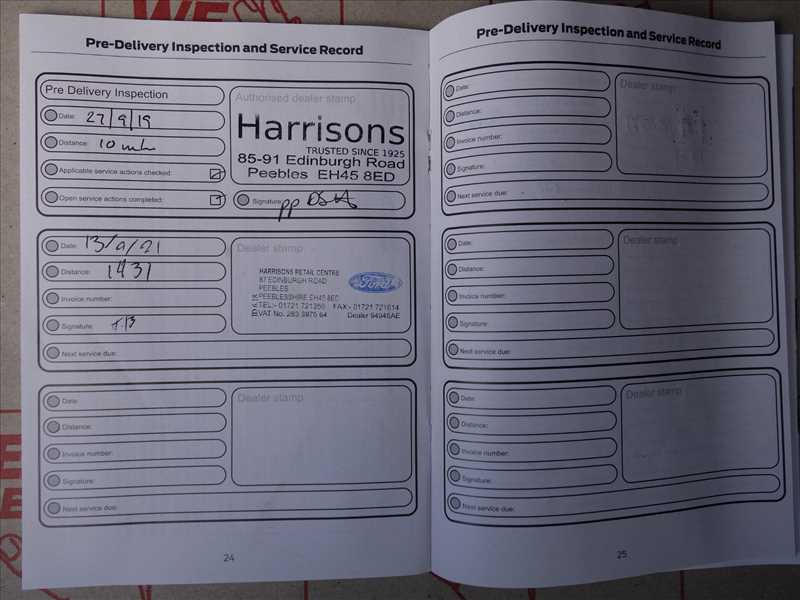 WE
Pre-Delivery Inspection and Service Record
Pre Delivery Inspection
Date: 27/9/19
Distance: 10 mls
Applicable service actions checked:
Open service actions completed:
Authorised dealer stamp
Harrisons
TRUSTED SINCE 1925
85-91 Edinburgh Road
Peebles EH45 8ED
Signature: pp
Date: 13/9/21
Distance: 1431
Invoice number:
Signature:
Next service due:
Dealer stamp
HARRISONS RETAIL CENTRE
87 EDINBURGH ROAD
PEEBLES
PEEBLESSHIRE EH45 8ED
TEL:- 01721 721350 FAX:- 01721 721614
VAT No. 263 3975 64 Dealer 94945AE
Ford
Date:
Distance:
Invoice number:
Signature:
Next service due:
Dealer stamp
24
Pre-Delivery Inspection and Service Record
Date:
Distance:
Invoice number:
Signature:
Next service due:
Dealer stamp
Date:
Distance:
Invoice number:
Signature:
Next service due:
Dealer stamp
Date:
Distance:
Invoice number:
Signature:
Next service due:
Dealer stamp
25